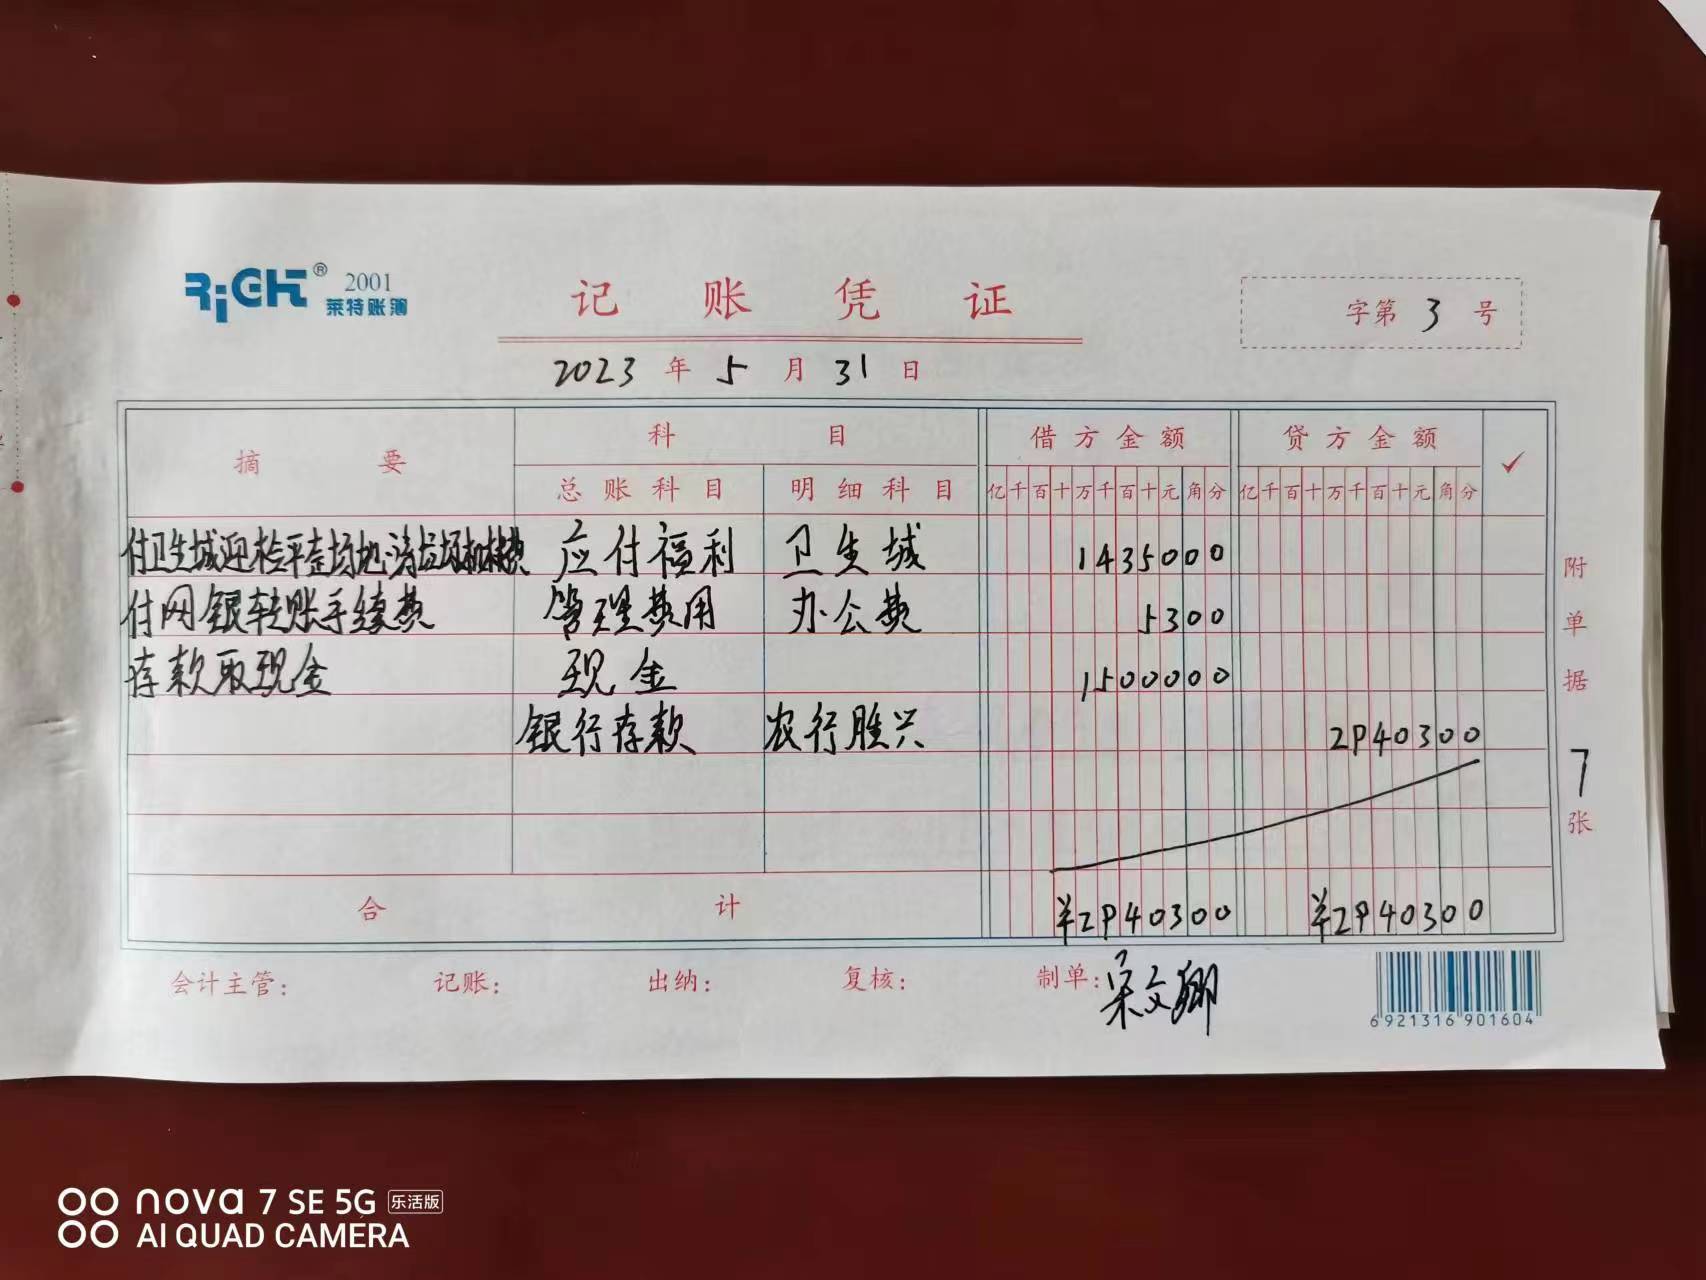 RiGHT® 2001
莱特账簿
记账凭证
字第 3 号
2023 年 5 月 31 日
摘要 科目 借方金额 贷方金额 ✓
总账科目 明细科目 亿千百十万千百十元角分 亿千百十万千百十元角分
付卫生城迎检平整场地、清垃圾机械费 应付福利 卫生城 1435000
付网银转账手续费 管理费用 办公费 5300
存款取现金 现金 1500000
银行存款 农行胜兴 2940300
合计 ¥2940300 ¥2940300
附单据 7 张
会计主管: 记账: 出纳: 复核: 制单: 宋文卿
6 921316 901604
nova 7 SE 5G 乐活版
AI QUAD CAMERA